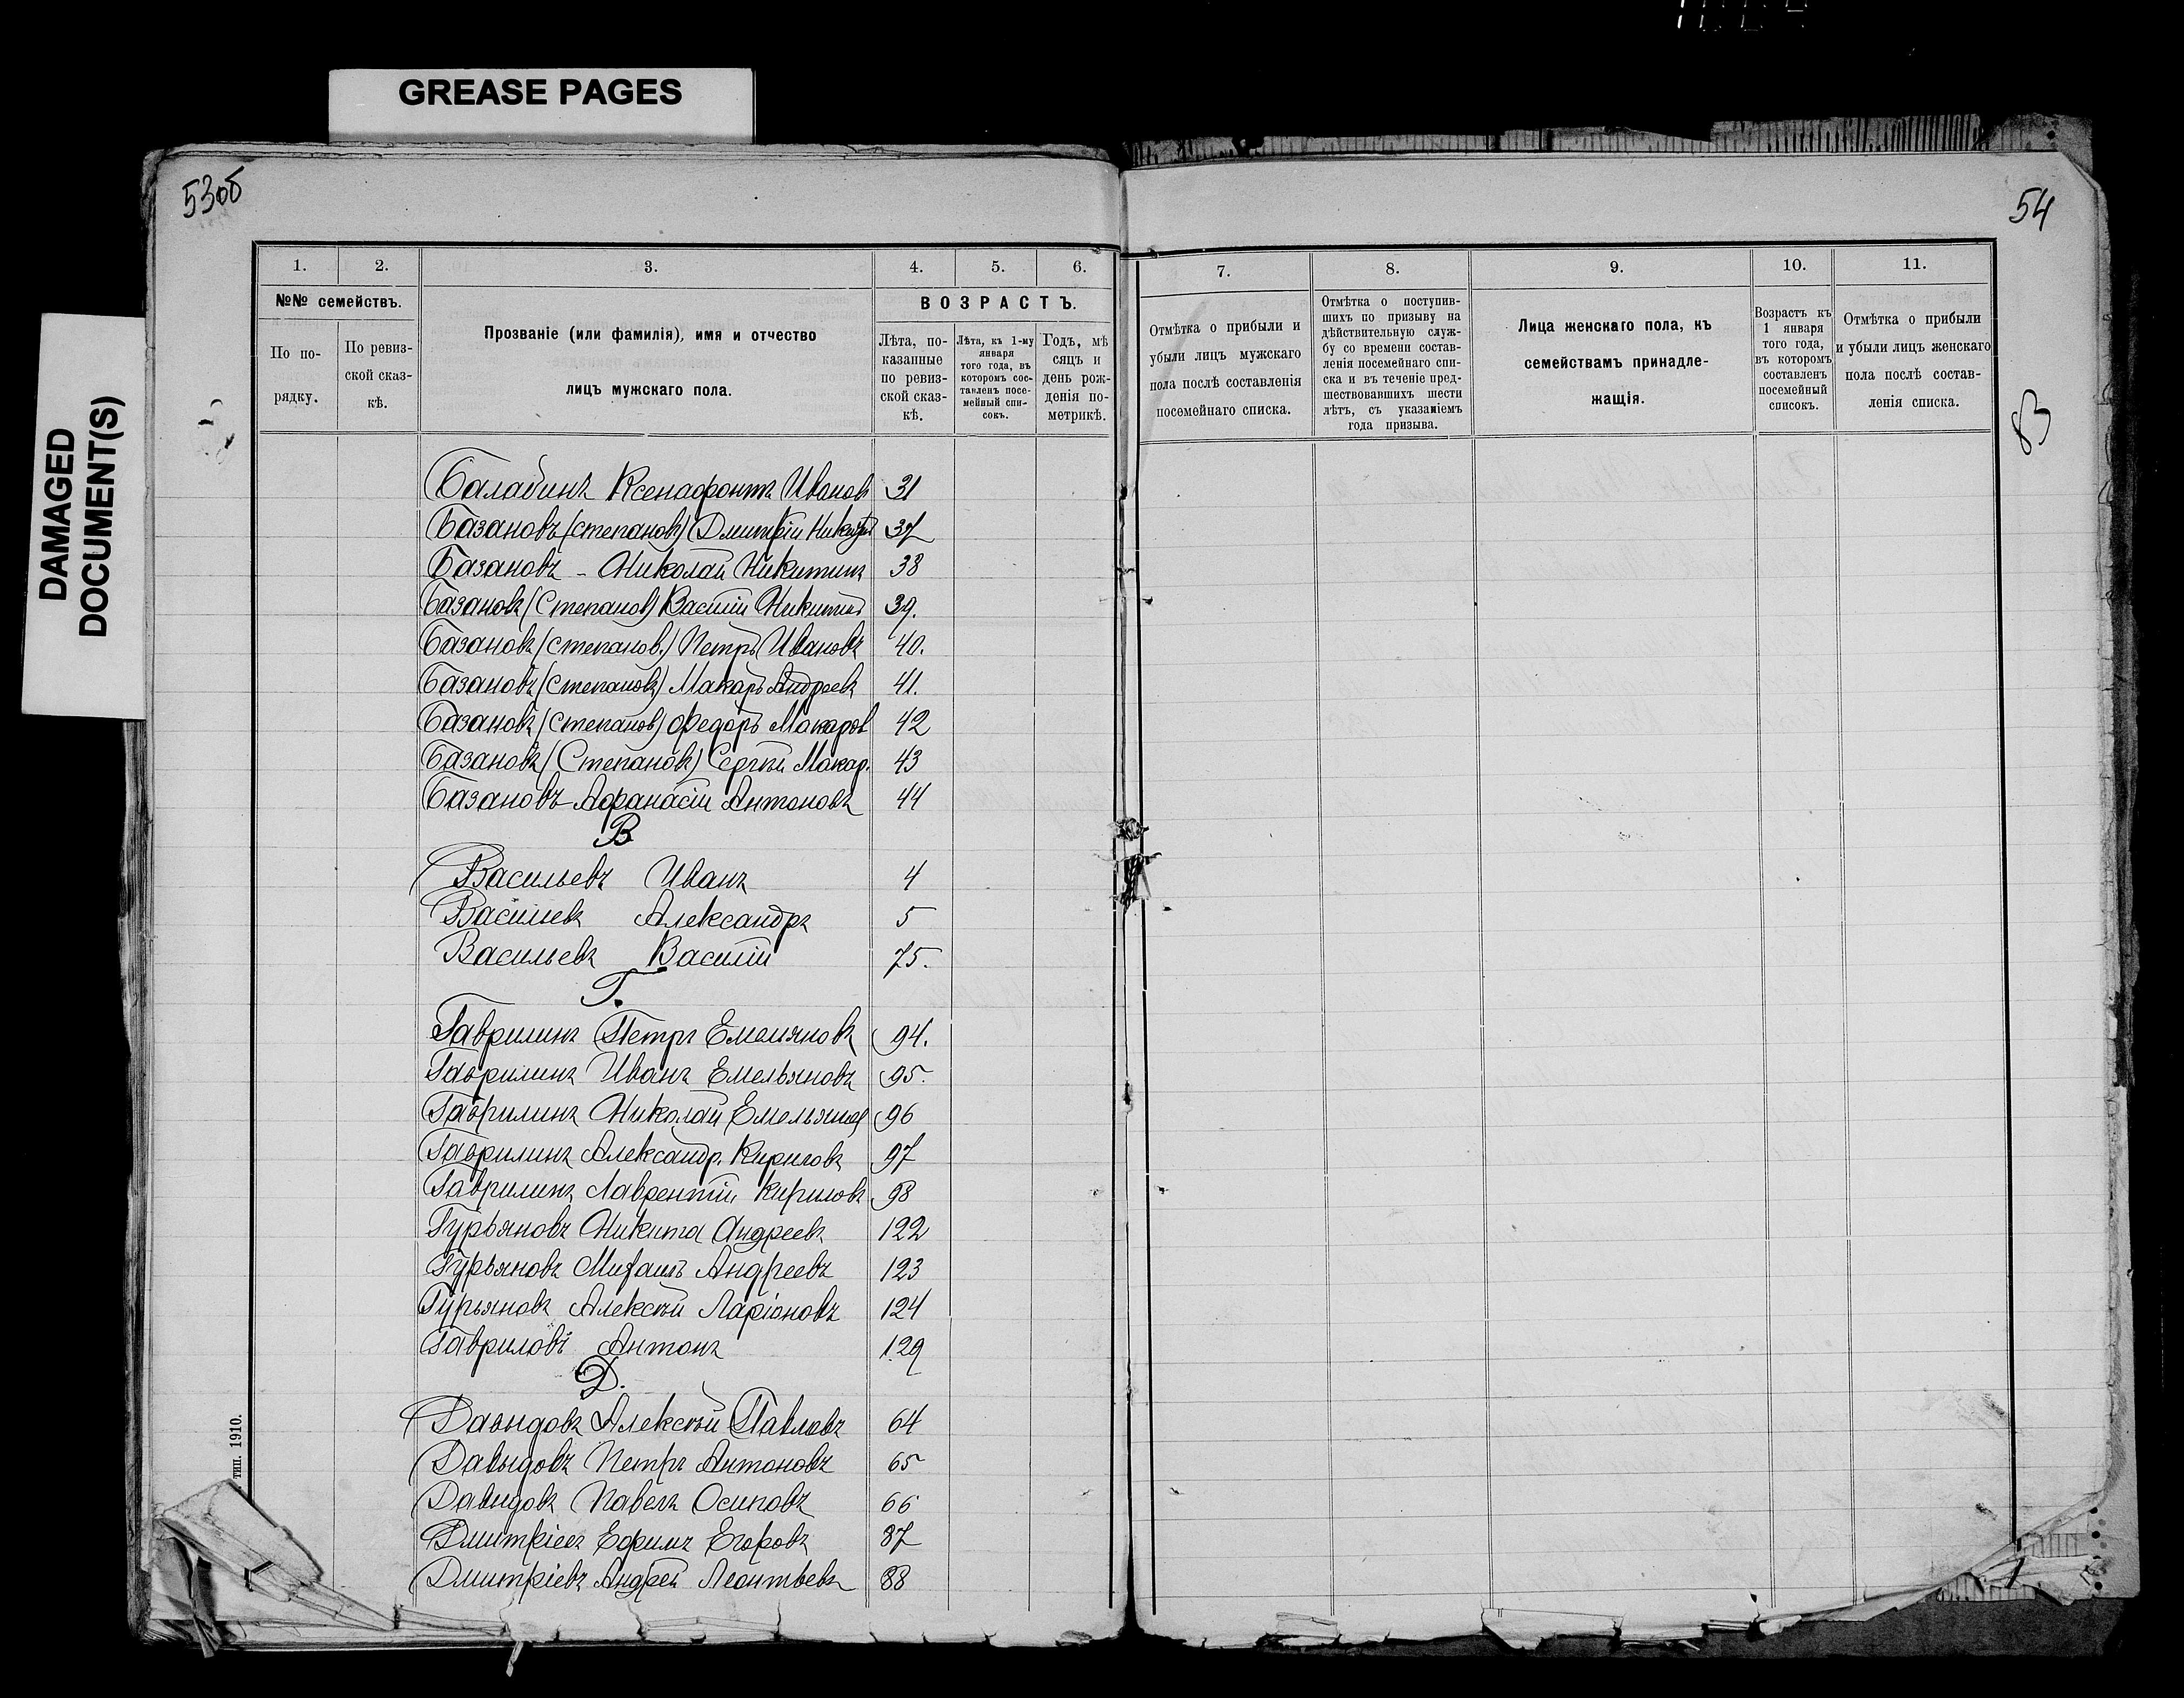 GREASE PAGES
DAMAGED
DOCUMENT(S)
53об
54
83
1.
2.
3.
4.
5.
6.
№№ семействъ.
По по-
рядку.
По ревиз-
ской сказ-
кѣ.
Прозваніе (или фамилія), имя и отчество
лицъ мужскаго пола.
ВОЗРАСТЪ.
Лѣта, по-
казанные
по ревиз-
ской сказ-
кѣ.
Лѣта, къ 1-му
января
того года, въ
которомъ сос-
тавленъ посе-
мейный спи-
сокъ.
Годъ, мѣ
сяцъ и
день рож-
денія по-
метрикѣ.
7.
8.
9.
10.
11.
Отмѣтка о прибыли и
убыли лицъ мужскаго
пола послѣ составленія
посемейнаго списка.
Отмѣтка о поступив-
шихъ по призыву на
дѣйствительную служ-
бу со времени состав-
ленія посемейнаго спи-
ска и въ теченіе пред-
шествовавшихъ шести
лѣтъ, съ указаніемъ
года призыва.
Лица женскаго пола, къ
семействамъ принадле-
жащія.
Возрастъ къ
1 января
того года,
въ которомъ
составленъ
посемейный
списокъ.
Отмѣтка о прибыли
и убыли лицъ женскаго
пола послѣ состав-
ленія списка.
Балабинъ Ксенофонтъ Ивановъ 31
Базановъ (Степановъ) Дмитрій 37
Базановъ - Николай Никитинъ 38
Базановъ (Степанов) Василій Никитинъ 39.
Базановъ (Степанов.) Петръ Ивановъ 40.
Базановъ (Степановъ) Макаръ Андреевъ 41.
Базановъ (Степанов) Федоръ Макаров 42
Базановъ (Степановъ) Сергѣй Макар. 43
Базановъ Афанасій Антоновъ 44
В
Васильевъ Иванъ 4
Васильевъ Александръ 5
Васильевъ Василій 75.
Г.
Гаврилинъ Петръ Емельяновъ 94.
Гаврилинъ Иванъ Емельяновъ 95.
Гаврилинъ Николай Емельянов 96
Гаврилинъ Александр. Кириловъ 97
Гаврилинъ Лаврентій Кириловъ 98
Гурьяновъ Никита Андреевъ 122
Гурьяновъ Михаилъ Андреевъ 123
Гурьяновъ Алексѣй Ларіоновъ 124
Гавриловъ Антонъ 129
Д.
Давыдовъ Алексѣй Павловъ 64
Давыдовъ Петръ Антоновъ 65
Давыдовъ Павелъ Осиповъ 66
Дмитріевъ Ефимъ Егоровъ 87
Дмитріевъ Андрей Леонтьевъ 88
тип. 1910.